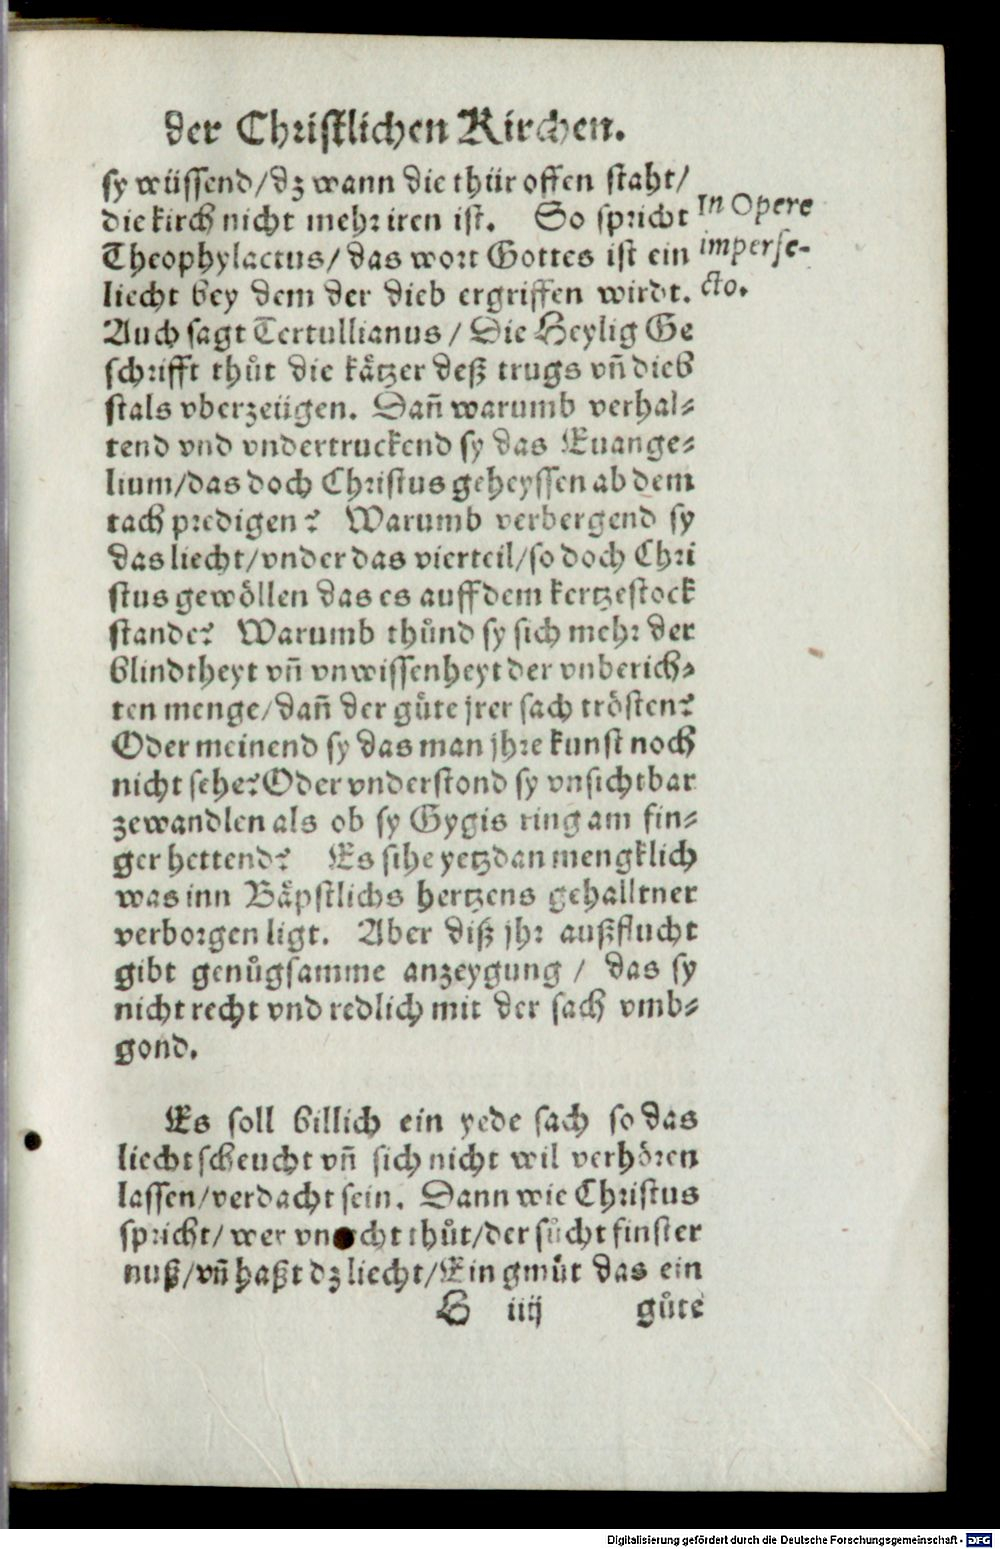 der Christlichen Kirchen.
sy wüssend/dz wann die thür offen staht/
die kirch nicht mehr iren ist. So spricht
In Opere
Theophylactus/ das wort Gottes ist ein
imperfe-
liecht bey dem der dieb ergriffen wirdt.
cto.
Auch sagt Tertullianus / Die Heylig Ge
schrifft thůt die kätzer deß trugs vn̄ dieb
stals vberzeügen. Dan̄ warumb verhal⸗
tend vnd vndertruckend sy das Euange⸗
lium/das doch Christus geheyssen ab dem
tach predigen? Warumb verbergend sy
das liecht/vnder das vierteil/so doch Chri
stus gewöllen das es auff dem kertzestock
stande? Warumb thůnd sy sich mehr der
blindtheyt vn̄ vnwissenheyt der vnberich⸗
ten menge/dan̄ der güte jrer sach trösten?
Oder meinend sy das man jhre kunst noch
nicht sehe? Oder vnderstond sy vnsichtbar
zewandlen als ob sy Gygis ring am fin⸗
ger hettend? Es sihe yetzdan mengklich
was inn Bäpstlichs hertzens gehalltner
verborgen ligt. Aber diß jhr außflucht
gibt genůgsamme anzeygung / das sy
nicht recht vnd redlich mit der sach vmb⸗
gond.
Es soll billich ein yede sach so das
liecht scheucht vn̄ sich nicht wil verhören
lassen/verdacht sein. Dann wie Christus
spricht/ wer cht thůt/der sůcht finster
nuß/vn̄ haßt dz liecht/Ein gmůt das ein
H iiij güte
Digitalisierung gefördert durch die Deutsche Forschungsgemeinschaft - DFG